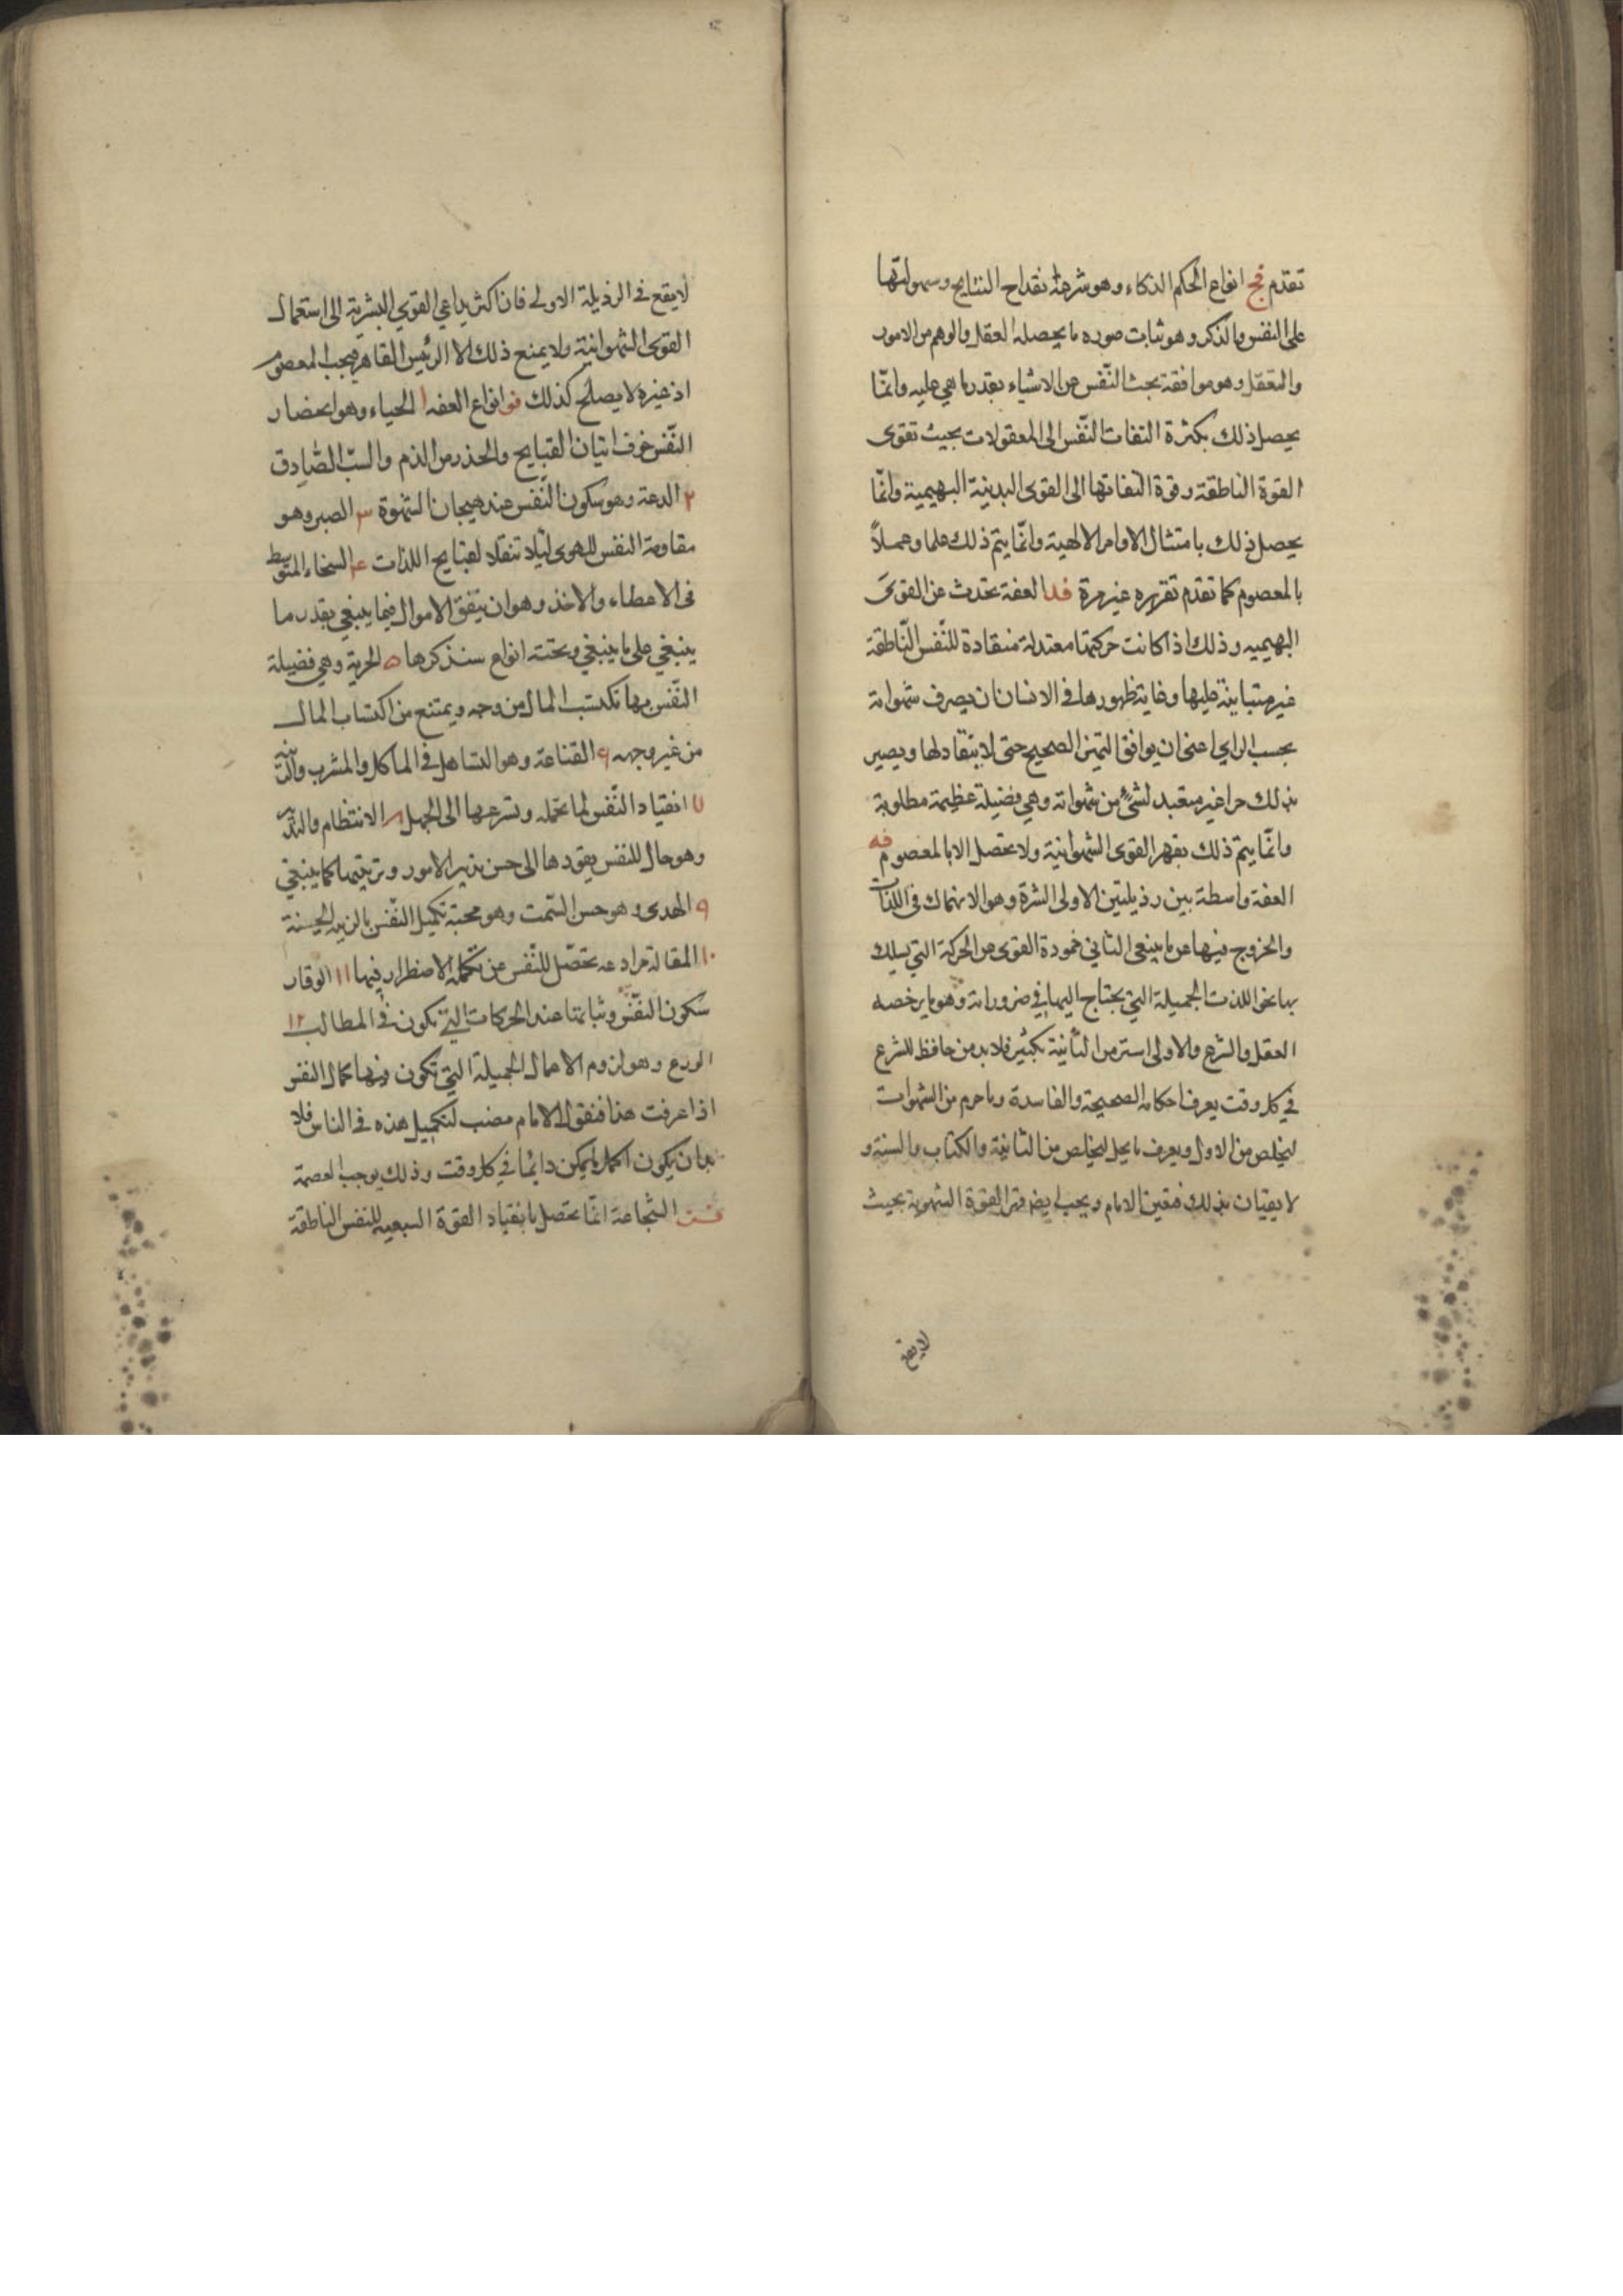 تقدم فج انواع الحكم الذكاء وهو شرطه انقداح النتايج وسهولتها
على النفس والذكر وهو ثبات صوره ما يحصله العقل والوهم من الامور
والتعقل وهو موافقة بحث النّفس عن الاشياء بقدر ما هي عليه وانمّا
يحصل ذلك بكثرة التفات النّفس الى المعقولات بحيث تقوى
القوة الناطقة وقوة التفاتها الى القوى البدنية البهيمية وانمّا
يحصل ذلك بامتثال الاوامر الالهية وانمّا يتم ذلك علما وعملاً
بالمعصوم كما تقدم تقريره غير مرة فد العفة تحدث عن القوى
البهيميه وذلك اذا كانت حركتها معتدلة منقادة للنّفس النّاطقة
غير متباينة عليها وغاية ظهورها في الانسان ان يصرف شهواته
بحسب الراي اعنى ان يوافق التميز الصحيح حتى لا ينقاد لها ويصير
بذلك حرا غير متعبد لشئ من شهواته وهي فضيلة عظيمة مطلوبة
وانمّا يتم ذلك بقهر القوى الشهوانية ولا تحصل الا بالمعصوم فه
العفة واسطة بين رذيلتين الاولى الشره وهو الانهماك فى اللذات
والخروج فيها عن ما ينبغى الثاني خمودة القوى عن الحركة التي يسلك
بها نحو اللذت الجميلة التي يحتاج اليها في ضروراته وهو ما يرخصه
العقل والشرع والاولى استر من الثانية بكثير فلا بد من حافظ للشرع
في كل وقت يعرف احكامه الصحيحة والفاسدة وما حرم من الشهوات
ليخلص من الاول ويعرف ما يحل ليخلص من الثانية والكتاب والسنة و
لا يفيان بذلك فتعين الامام ويجب القوة الشهوية بحيث
لا يقع
لا يقع فى الرذيلة الاولى فان اكثر دواعي القوى البشرية الى استعمال
القوى الشهوانية ولا يمنع ذلك الا الرئيس القاهر فيجب المعصوم
اذ غيره لا يصلح كذلك فو انواع العفه ا الحياء وهو احضار
النّفس خوف اتيان القبايح والحذر من الذم والسبّ الصّادق
٢ الدعة وهو سكون النّفس عند هيجان الشهوة ٣ الصبر وهو
مقاومة النفس للهوى ليلا تنقاد لقبايح اللذات ٤ السخاء المتوسط
فى الاعطاء والاخذ وهو ان ينفق الاموال فيما ينبغي بقدر ما
ينبغي على ما ينبغي وتحته انواع سنذكرها ٥ الحرية وهي فضيلة
النّفس بها تكتسب المال من وجه ويمتنع من اكتساب المال
من غير وجهه ٦ القناعة وهو التساهل فى الماكل والمشرب والزينة
٧ انقياد النّفس لما تحمله وتسرعها الى الجميل ٨ الانتظام والتدبير
وهو حال للنفس يقودها الى حسن تدبير الامور وترتيبها كما ينبغي
٩ الهدى وهو حسن السّمت وهو محبة تكميل النّفس بالزينه الحسنة
١٠ تحصّل للنّفس عن الاضطرار فيها ١١ الوقار
سكون النفّس وثباتها عند الحركات التي تكون فى المطالب ١٢
الورع وهو لزوم الاعمال الجميلة التي تكون فيها كمال النفس
اذا عرفت هذا فنقول الامام منصب لتكميل هذه فى الناس فلا
بد ان يكون اكمل ما يمكن دائما في كل وقت وذلك يوجب العصمة
فز الشّجاعة انمّا تحصل بانقياد القوة السبعيه للنفس الناطقة